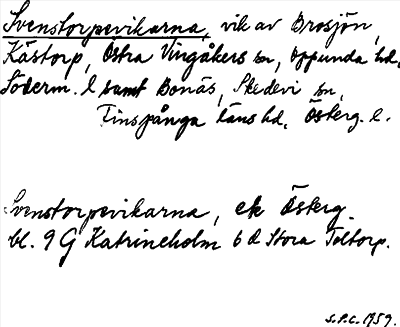 Svenstorpevikarna, vik av Brosjön,
Kästorp, Östra Vingåkers sn, Oppunda hd,
Söderm. l samt Bonäs, Skedevi sn,
Finspånga läns hd. Österg. l.
Svenstorpevikarna, ek Österg.
bl. 9 G Katrineholm 6 d Stora Toltorp.
S.P.C. 1759.